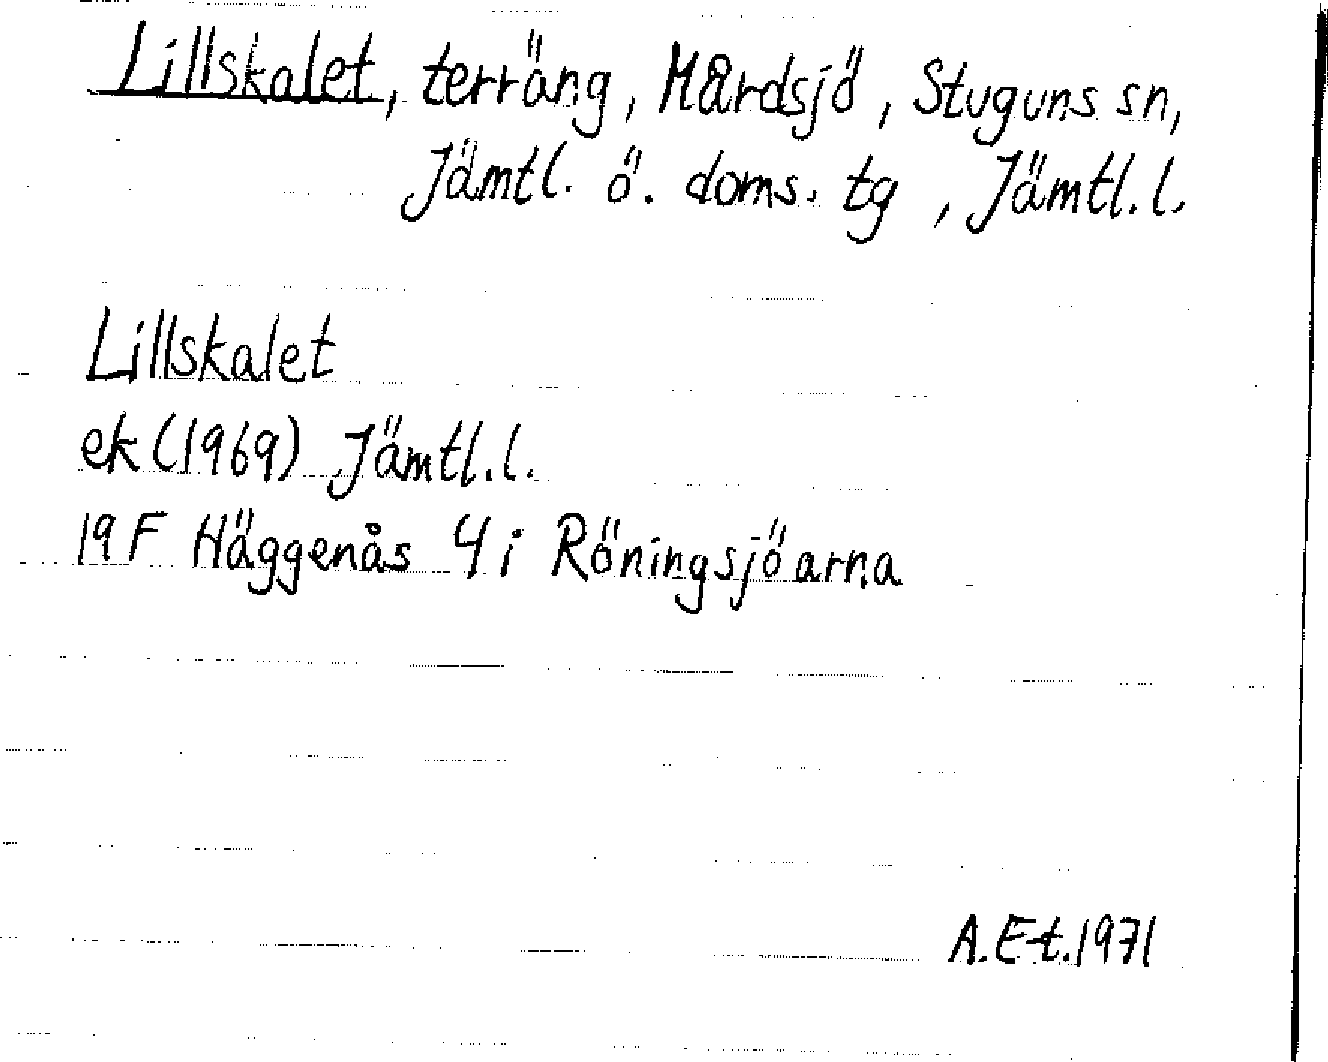 Lillskalet, terräng, Mårdsjö, Stuguns sn,
Jämtl. ö. doms. tg, Jämtl. l.
Lillskalet
ek (1969) Jämtl. l.
19F Häggenås 4 i Röningsjöarna
A.E-t. 1971